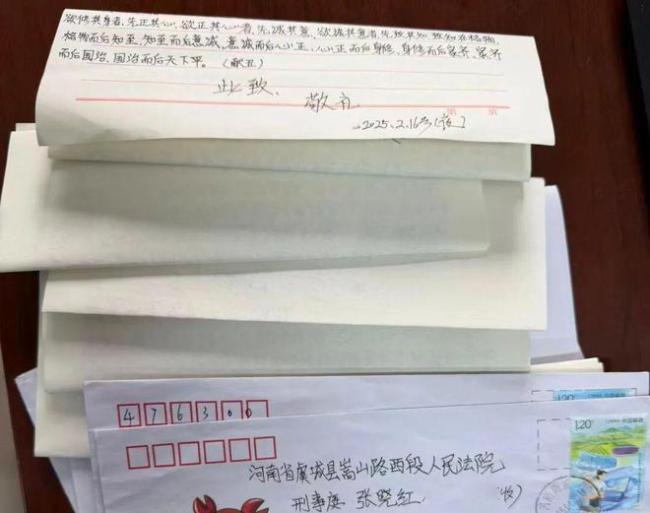 欲修其身者,先正其心,欲正其心者,先诚其意,欲诚其意者,先致其知,致知在格物,
格物而后知至,知至而后意诚,意诚而后心正,心正而后身修,身修而后家齐,家齐
而后国治,国治而后天下平。(献丑)
此致、
敬礼
第 页
2025.2.16号(夜)
476300
1.20
1.20
河南省虞城县嵩山路西段人民法院
刑事庭 张晓红 (收)